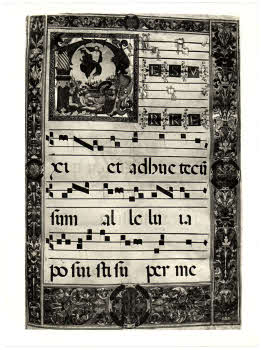 R ESV
RRE
xi et adhuc tecū
sum al le lu ia
po sui sti su per me